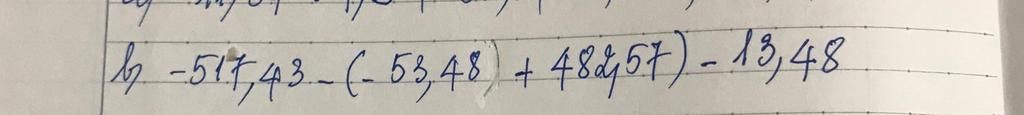 b, -517,43 - (- 53,48) + 482,57) - 13,48